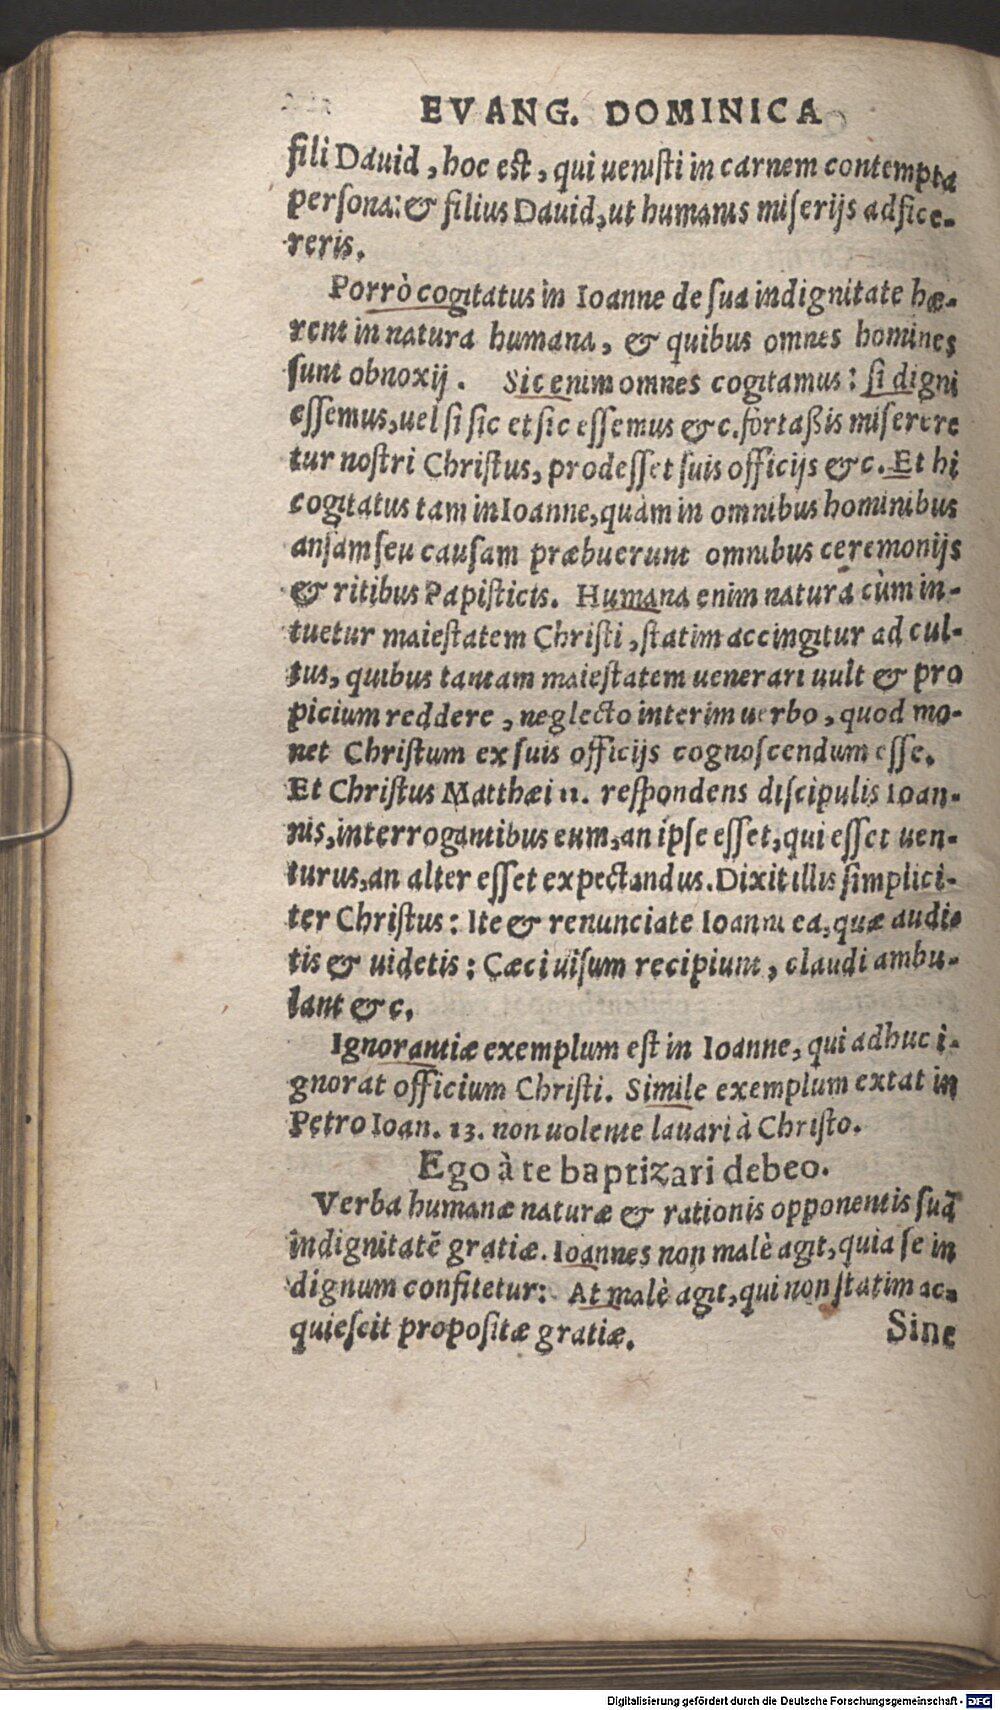 EVANG. DOMINICA
fili Dauid, hoc est, qui uenisti in carnem contempta
persona: & filius Dauid, ut humanis miserijs adfice-
reris.
Porrò cogitatus in Ioanne de sua indignitate hæ-
rent in natura humana, & quibus omnes homines
sunt obnoxij. Sic enim omnes cogitamus: si digni
essemus, uel si sic et sic essemus &c. fortaßis miserere
tur nostri Christus, prodesset suis officijs &c. Et hi
cogitatus tam in Ioanne, quàm in omnibus hominibus
ansam seu causam præbuerunt omnibus ceremonijs
& ritibus Papisticis. Humana enim natura cùm in-
tuetur maiestatem Christi, statim accingitur ad cul-
tus, quibus tantam maiestatem uenerari uult & pro
picium reddere, neglecto interim uerbo, quod mo-
net Christum ex suis officijs cognoscendum esse.
Et Christus Matthæi 11. respondens discipulis Ioan-
nis, interrogantibus eum, an ipse esset, qui esset uen-
turus, an alter esset expectandus. Dixit illis simplici-
ter Christus: Ite & renunciate Ioanni ea, quæ audi-
tis & uidetis: Cæci uisum recipiunt, claudi ambu-
lant &c.
Ignorantiæ exemplum est in Ioanne, qui adhuc i-
gnorat officium Christi. Simile exemplum extat in
Petro Ioan. 13. non uolente lauari à Christo.
Ego à te baptizari debeo.
Verba humanæ naturæ & rationis opponentis suā
indignitatē gratiæ. Ioannes non malè agit, quia se in
dignum confitetur: At malè agit, qui non statim ac-
quiescit propositæ gratiæ.
Sine
Digitalisierung gefördert durch die Deutsche Forschungsgemeinschaft - DFG